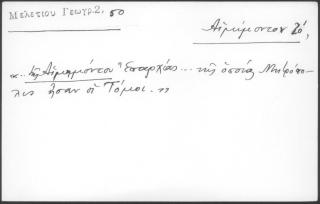 Μελετίου Γεωγρ.2, 50
Αἱμίμοντον
«.. τῆς Αἱμιμόντου Ἐπαρχίας... τῆς ὁποίας Μητρόπο-
λις ἦσαν οἱ Τόμοι..»